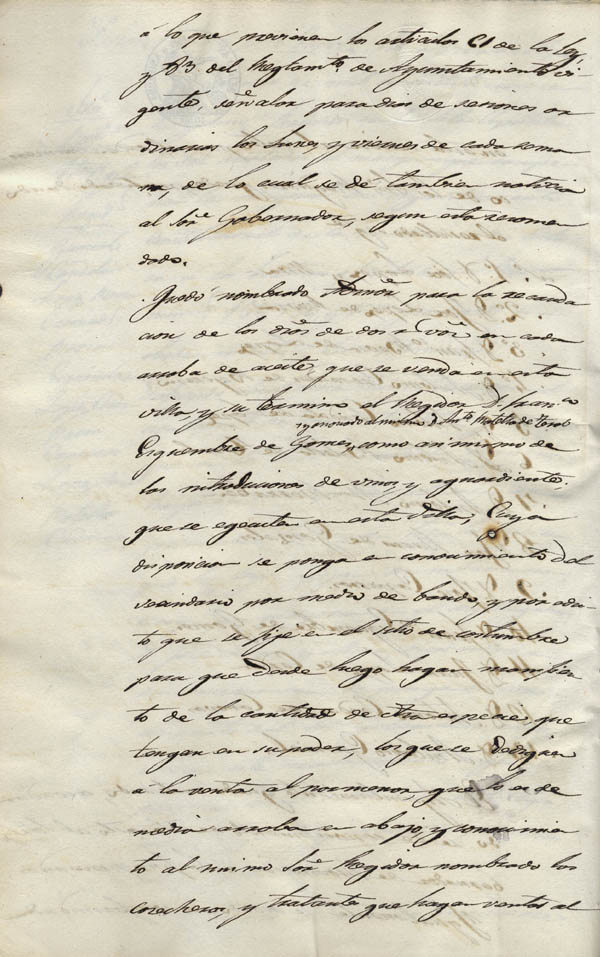 á lo que previenen los articulos 61 de la ley,
y 83 del Reglamto. de Ayuntamiento vi
gente, señalar para dias de sesiones or
dinarias los Lunes y viernes de cada sema
na, de lo cual se de tambien noticia
al Sor. Gobernador, segun esta recomen
dado.
Quedó nombrado Admor. para la recauda
cion de los dros. de dos rs. von. en cada
arroba de aceite, que se venda en esta
villa, y su termino el Regidor D. Franco
y asociado al mismo D. Anto.
Esquembre de Gomez, como asi mismo de
las introduciones de vinos, y aguardiente,
que se egecuten en esta Villa; Cuya
disposicion se ponga en conocimiento del
vecindario por medio de bando, y por edic
to que se fije en el sitio de costumbre
para que desde luego hagan manifies
to de la cantidad de otra especie que
tengan en su poder, los que se dediquen
á la venta al pormenor, que lo es de
media arroba en abajo, y conocimien
to al mismo Sor. Regidor nombrado los
cosecheros, y tratantes que hagan ventas al